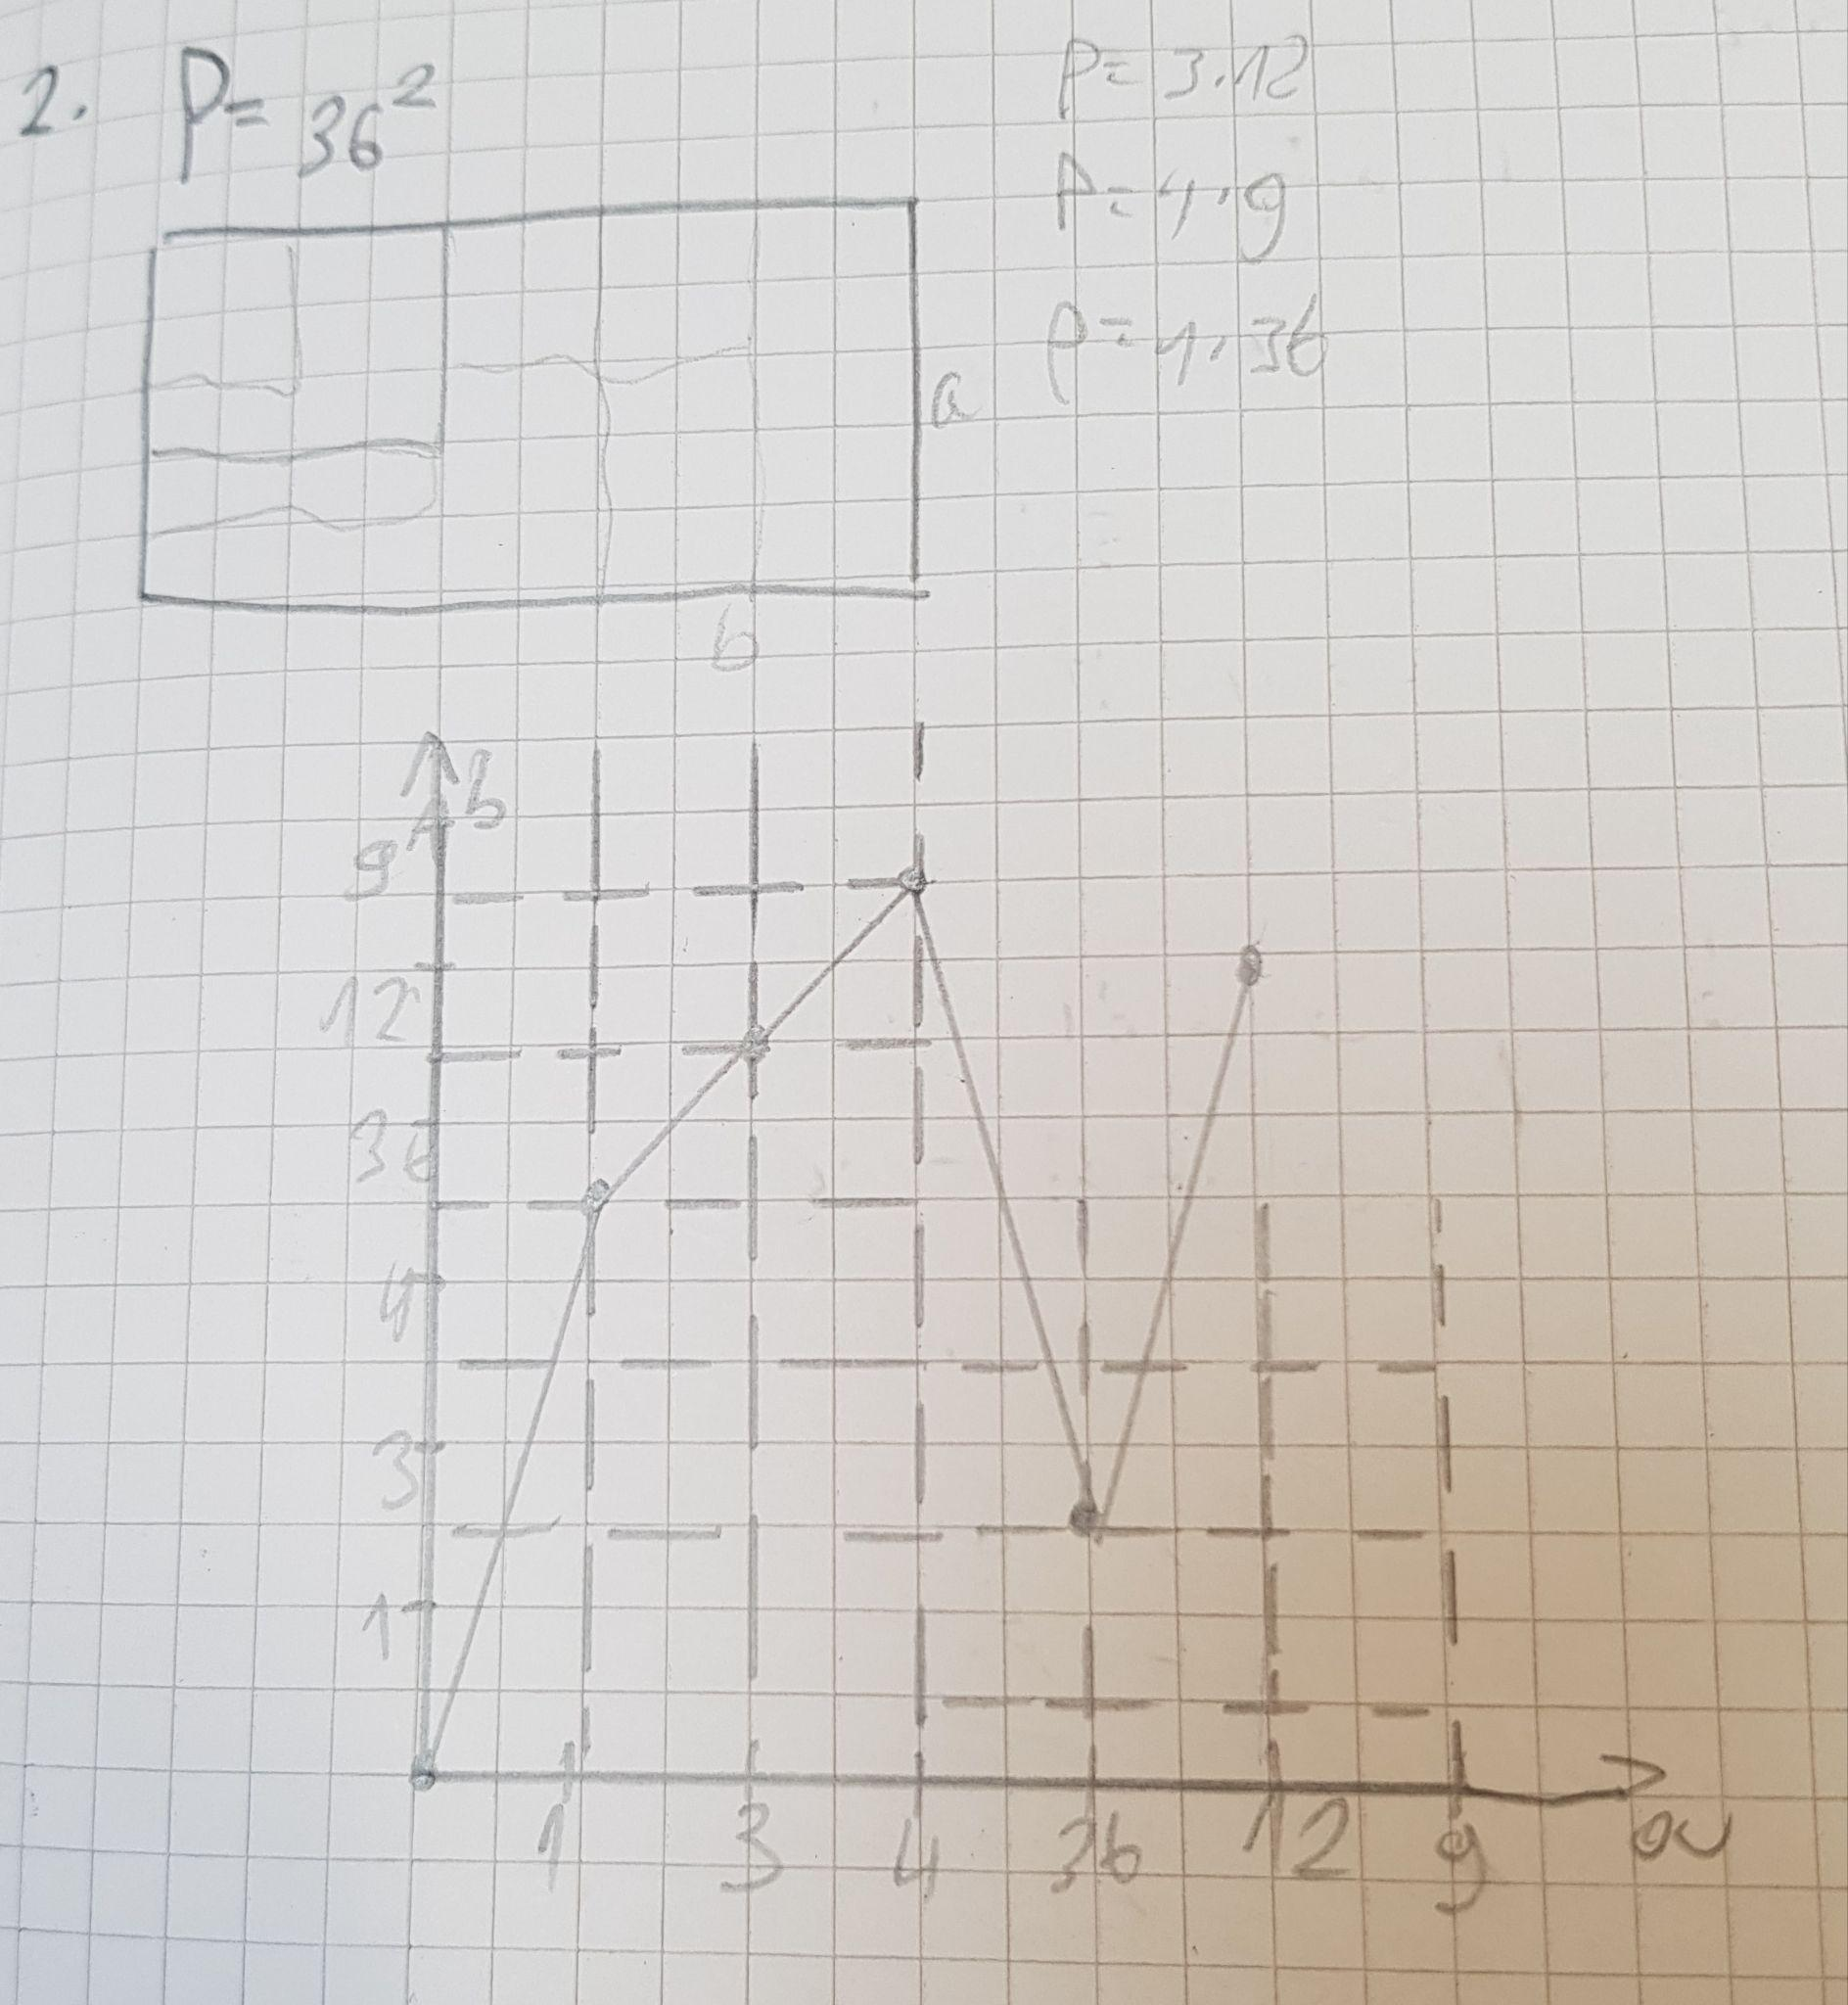 2. P= 36²
P= 3·12
P= 4·9
P= 1·36
a
b
b
9
12
36
4
3
1
1 3 4 36 12 9 a